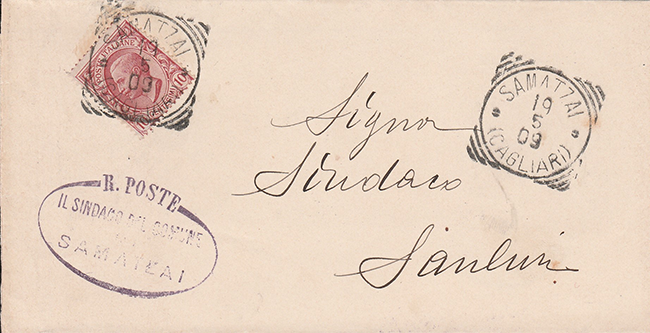 SAMATZAI
19
5
09
(CAGLIARI)
POSTE ITALIANE
10
SAMATZAI
19
5
09
(CAGLIARI)
Signor
Sindaco
Sanluri
R. POSTE
IL SINDACO DEL COMUNE
SAMATZAI